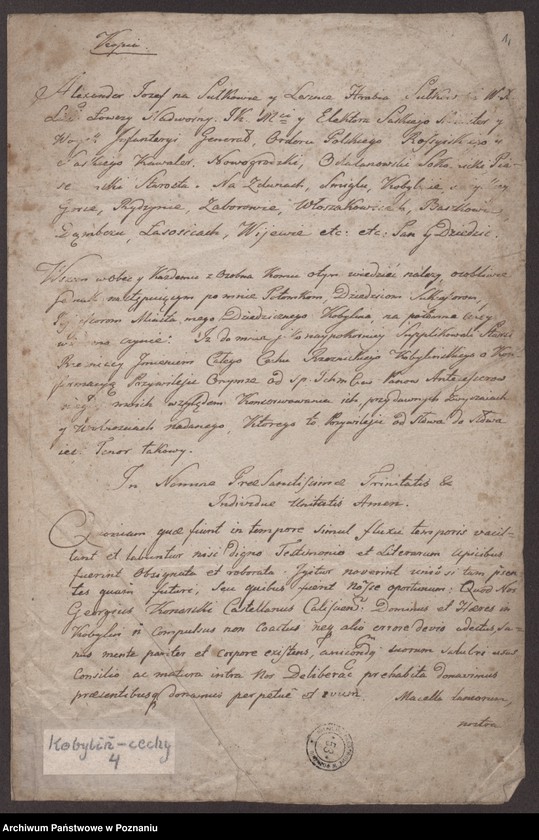 Kopia.
1.
Alexander Jozef na Sulkowie y Lesznie Hrabia Sulkowski W. X.
Lowczy Nadworny. Ik. Mci y Elektora Saskiego Minister y
Woysk Infanteryi Generał, Orderu Polskiego Rossyiskiego y
Saskiego Kawaler, Nowogrodzki, Odolanowski Soko icki Pia-
se icki Starosta. Na Zdunach, Smiglu, Kobylinie
Gorce, Rydzynie, Zaborowie, Włoszakowicach, Baszkowie,
Dąmbczu, Lasosicach, Wijewie etc: etc: Pan y Dziedzic.
Wszem wobec y Kazdemu z osobna Komu otym wiedzieć nalezy osobliwie
jednak następuiącym po mnie Potomkom, Dziedzicom Sukcessorom,
Possessorom Miasta mego Dziedzicznego Kobylina, na potomne czasy
wiadomo czynie: Iz do mnie jak naypokorniey Supplikowali Starsi
Rzeznicy Imieniem Całego Cechu Rzeznickiego Kobylinskiego o Kon-
firmacyą Przywileju Onymze od sp. Ichmościow Panow Antecessorow
moich względem Konserwowania ich przy dawnych Zwyczaiach
y Wolnosciach nadanego, Ktorego to Przywileju od Słowa do Słowa
iest Tenor takowy.
In Nomine Prae Sanctissimae Trinitatis &
Individuae Unitatis Amen.
Quoniam quae fiunt in tempore simul fluxu temporis vacil-
lant et labuntur nisi digno Testimonio et Literarum Apicibus
fuerint obsignata et roborata. Igitur noverint universi tam praesen-
tes quam futuri, seu quibus fuerit nosse oportunum: Quod Nos
Georgius Konarski Castellanus Calissiens: Dominus et Haeres in
Kobylin non compulsus non coactus neq alio errore devio seductus, sa-
nus mente pariter et corpore existens, amicorum suorum salubri usus
Consilio ac matura intra Nos Deliberatione praehabita donavimus
praesentibusq donamus perpetue et
Macella laniorum,
nostra
Kobylin-cechy
4
53
Archiwum Państwowe w Poznaniu